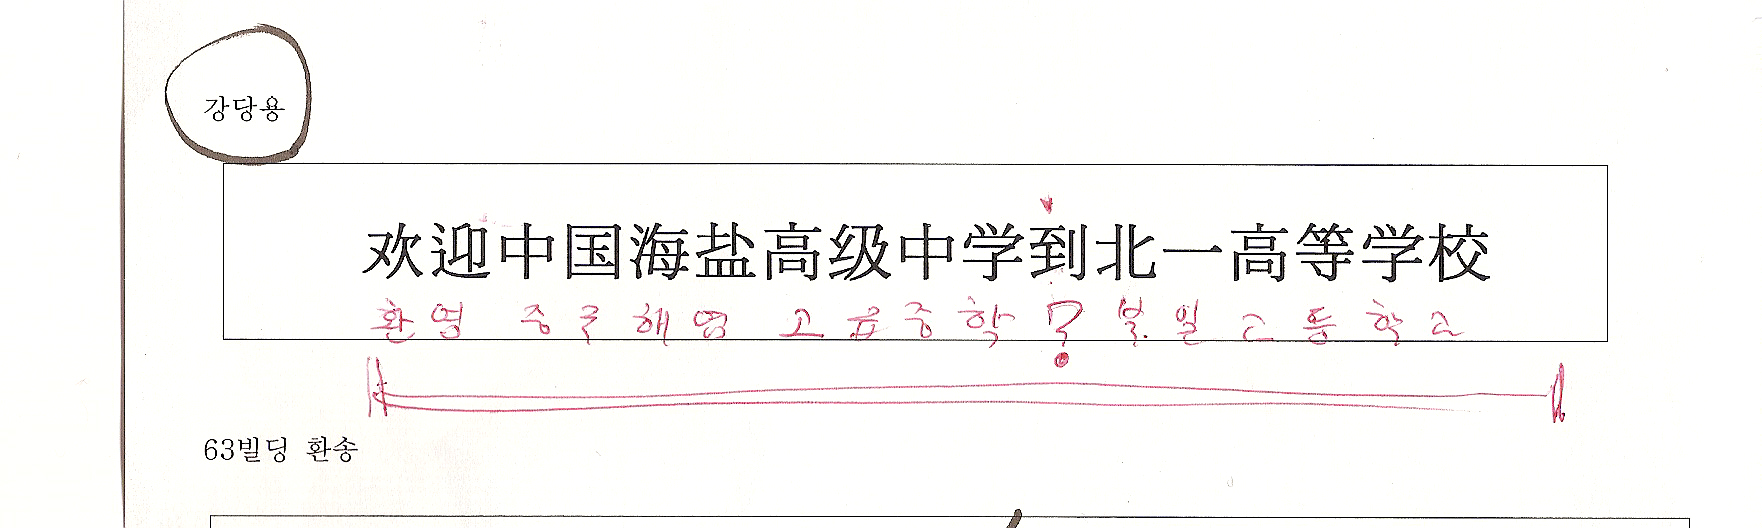 강당용
欢迎中国海盐高级中学到北一高等学校
환영 중국해염 고급중학 ? 북일고등학교
63빌딩 환송